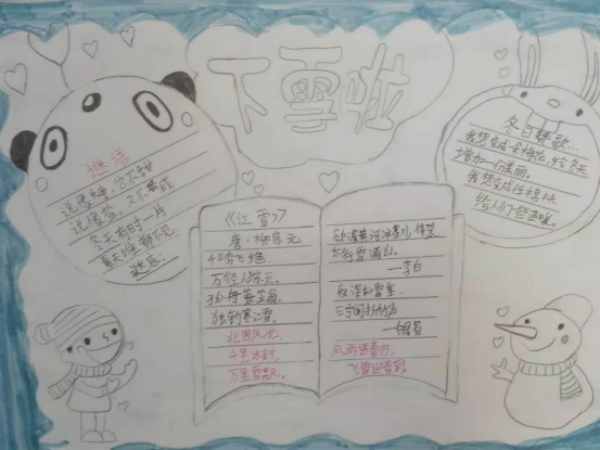 下雪啦
谜语
说像糖，它不甜
说像盐，又不咸
冬天有时一片
夏天
谜底：
《江雪》
唐·柳宗元
千山鸟飞绝，
万径人踪灭。
孤舟蓑笠翁，
独钓寒江雪。
北国风光，
千里冰封，
万里雪飘。
欲渡黄河冰塞川，将登
太行雪满山。
—李白
夜深知雪重，
时闻折竹声
风雨送春归，
飞雪迎春到
冬日
我想变成一朵梅花，给冬天
增加一份美丽。
我想变成
给人们一些温暖。